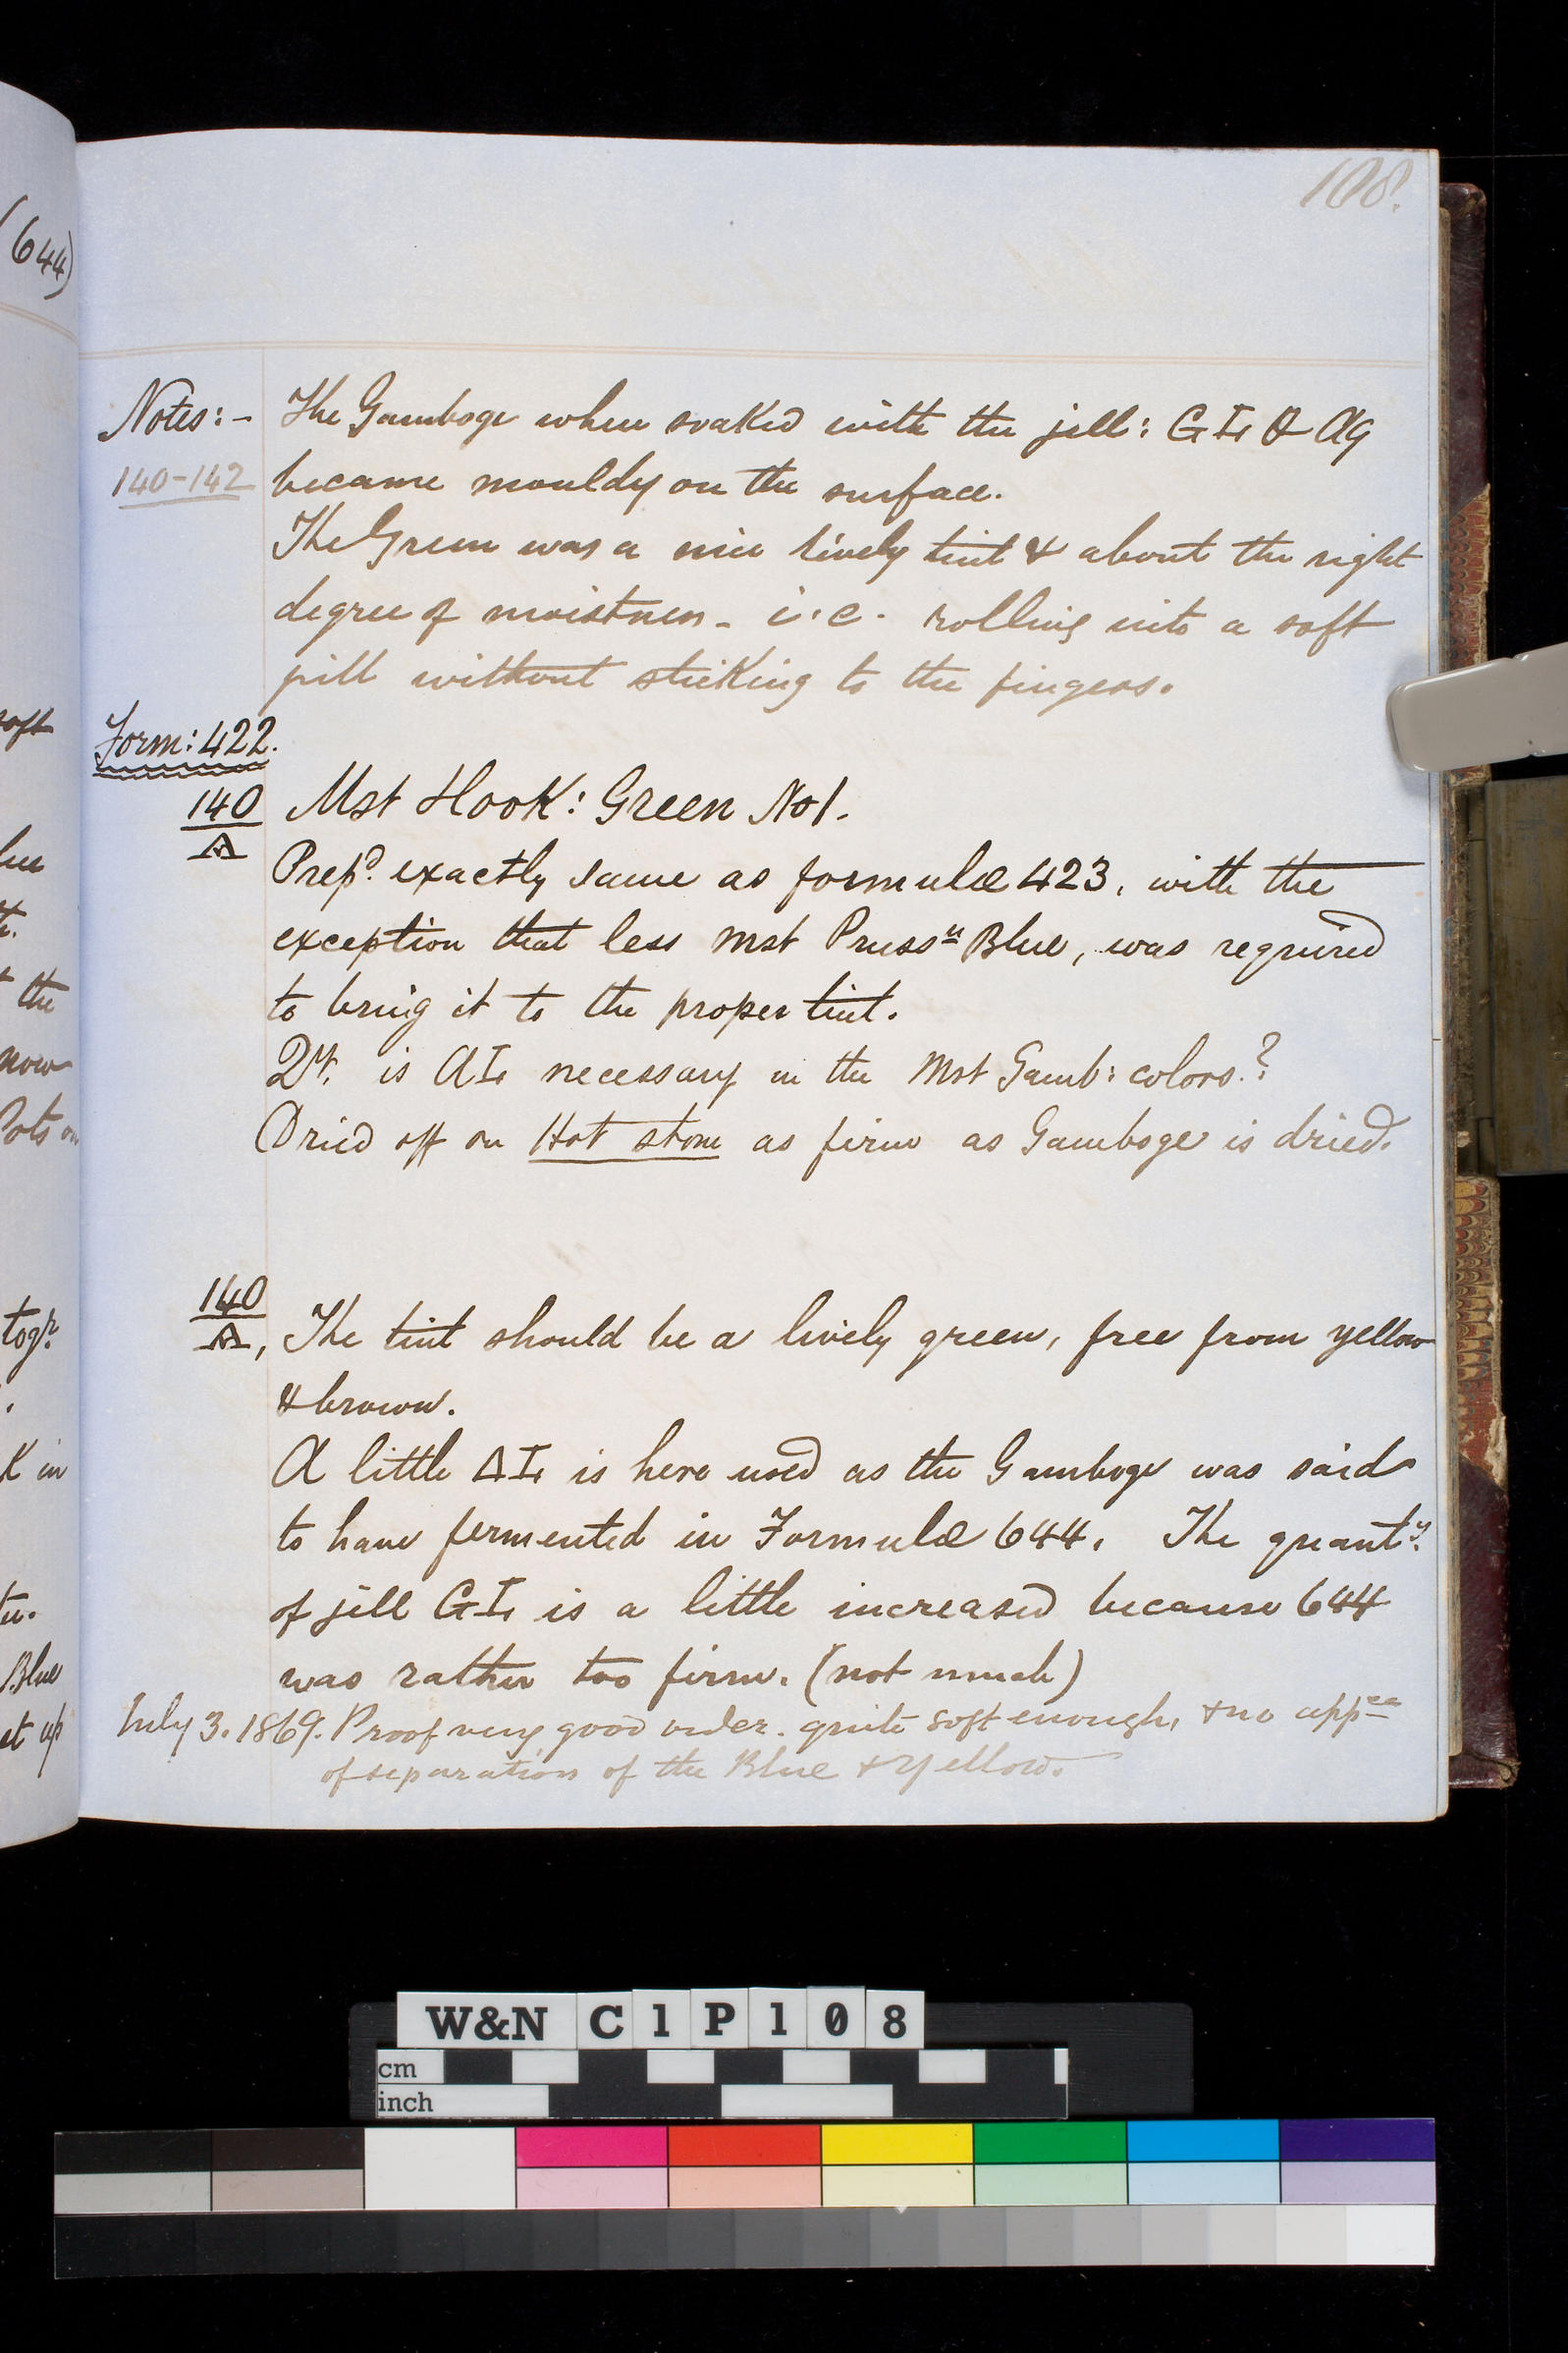 108.
(644)
Notes:- The Gamboge when soaked with the jell: GI & Ag
140-142 became mouldy on the surface.
The Green was a nice lively tint & about the right
degree of moistness - i.e. rolling into a soft
pill without sticking to the fingers.
soft
Form: 422.
140
A
Mst Hook: Green No 1.
Prepd. exactly same as formulæ 423, with the
exception that less mst Pruss.n Blue, was required
to bring it to the proper tint.
the
now
Qy. is AI necessary in the Mst Gamb: colors.?
Pots on
Dried off on Hot stone as firm as Gamboge is dried.
140
A, The tint should be a lively green, free from yellow
togr.
& brown.
K in
A little AI is here used as the Gamboge was said
to have fermented in Formulæ 644. The quanty.
of jell GI is a little increased because 644
Blue
was rather too firm. (not much)
et up
July 3. 1869. Proof very good order. quite soft enough, & no appce
of separation of the Blue & Yellow.
W&N C1P108
cm
inch